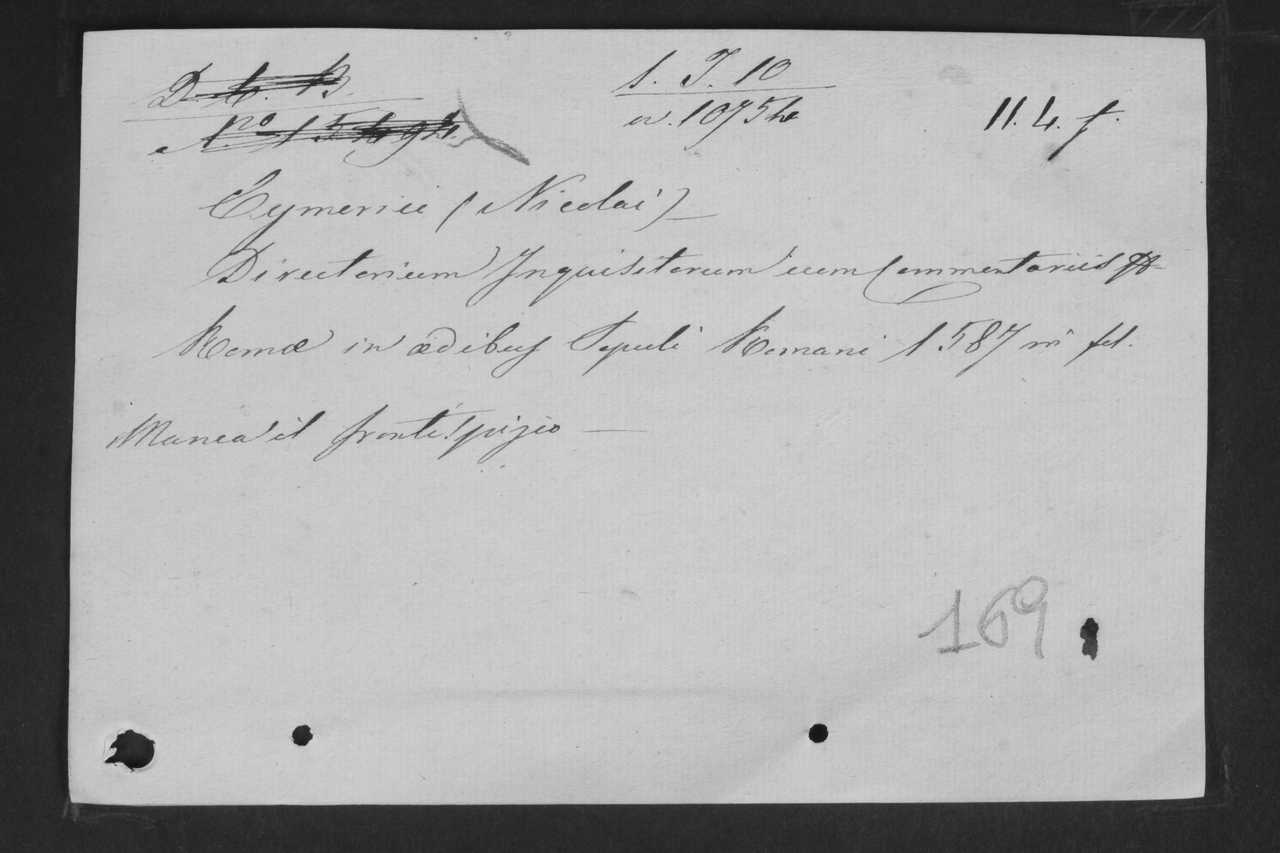 D. 6. 13.
1. J. 10
N.ro 15494.
n. 10754
11. 4. f.
Eymerici (Nicolai)
Directorium Inquisitorum cum Commentariis &
Romæ in ædibus Populi Romani 1587 in fol.
Manca il frontispizio
169